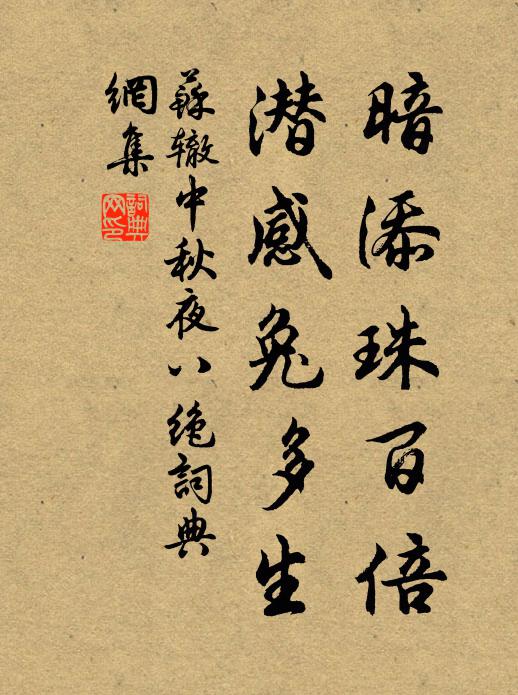 暗添珠百倍
潜感兔多生
蘇辙中秋夜八绝詞典
網集
詞典网印